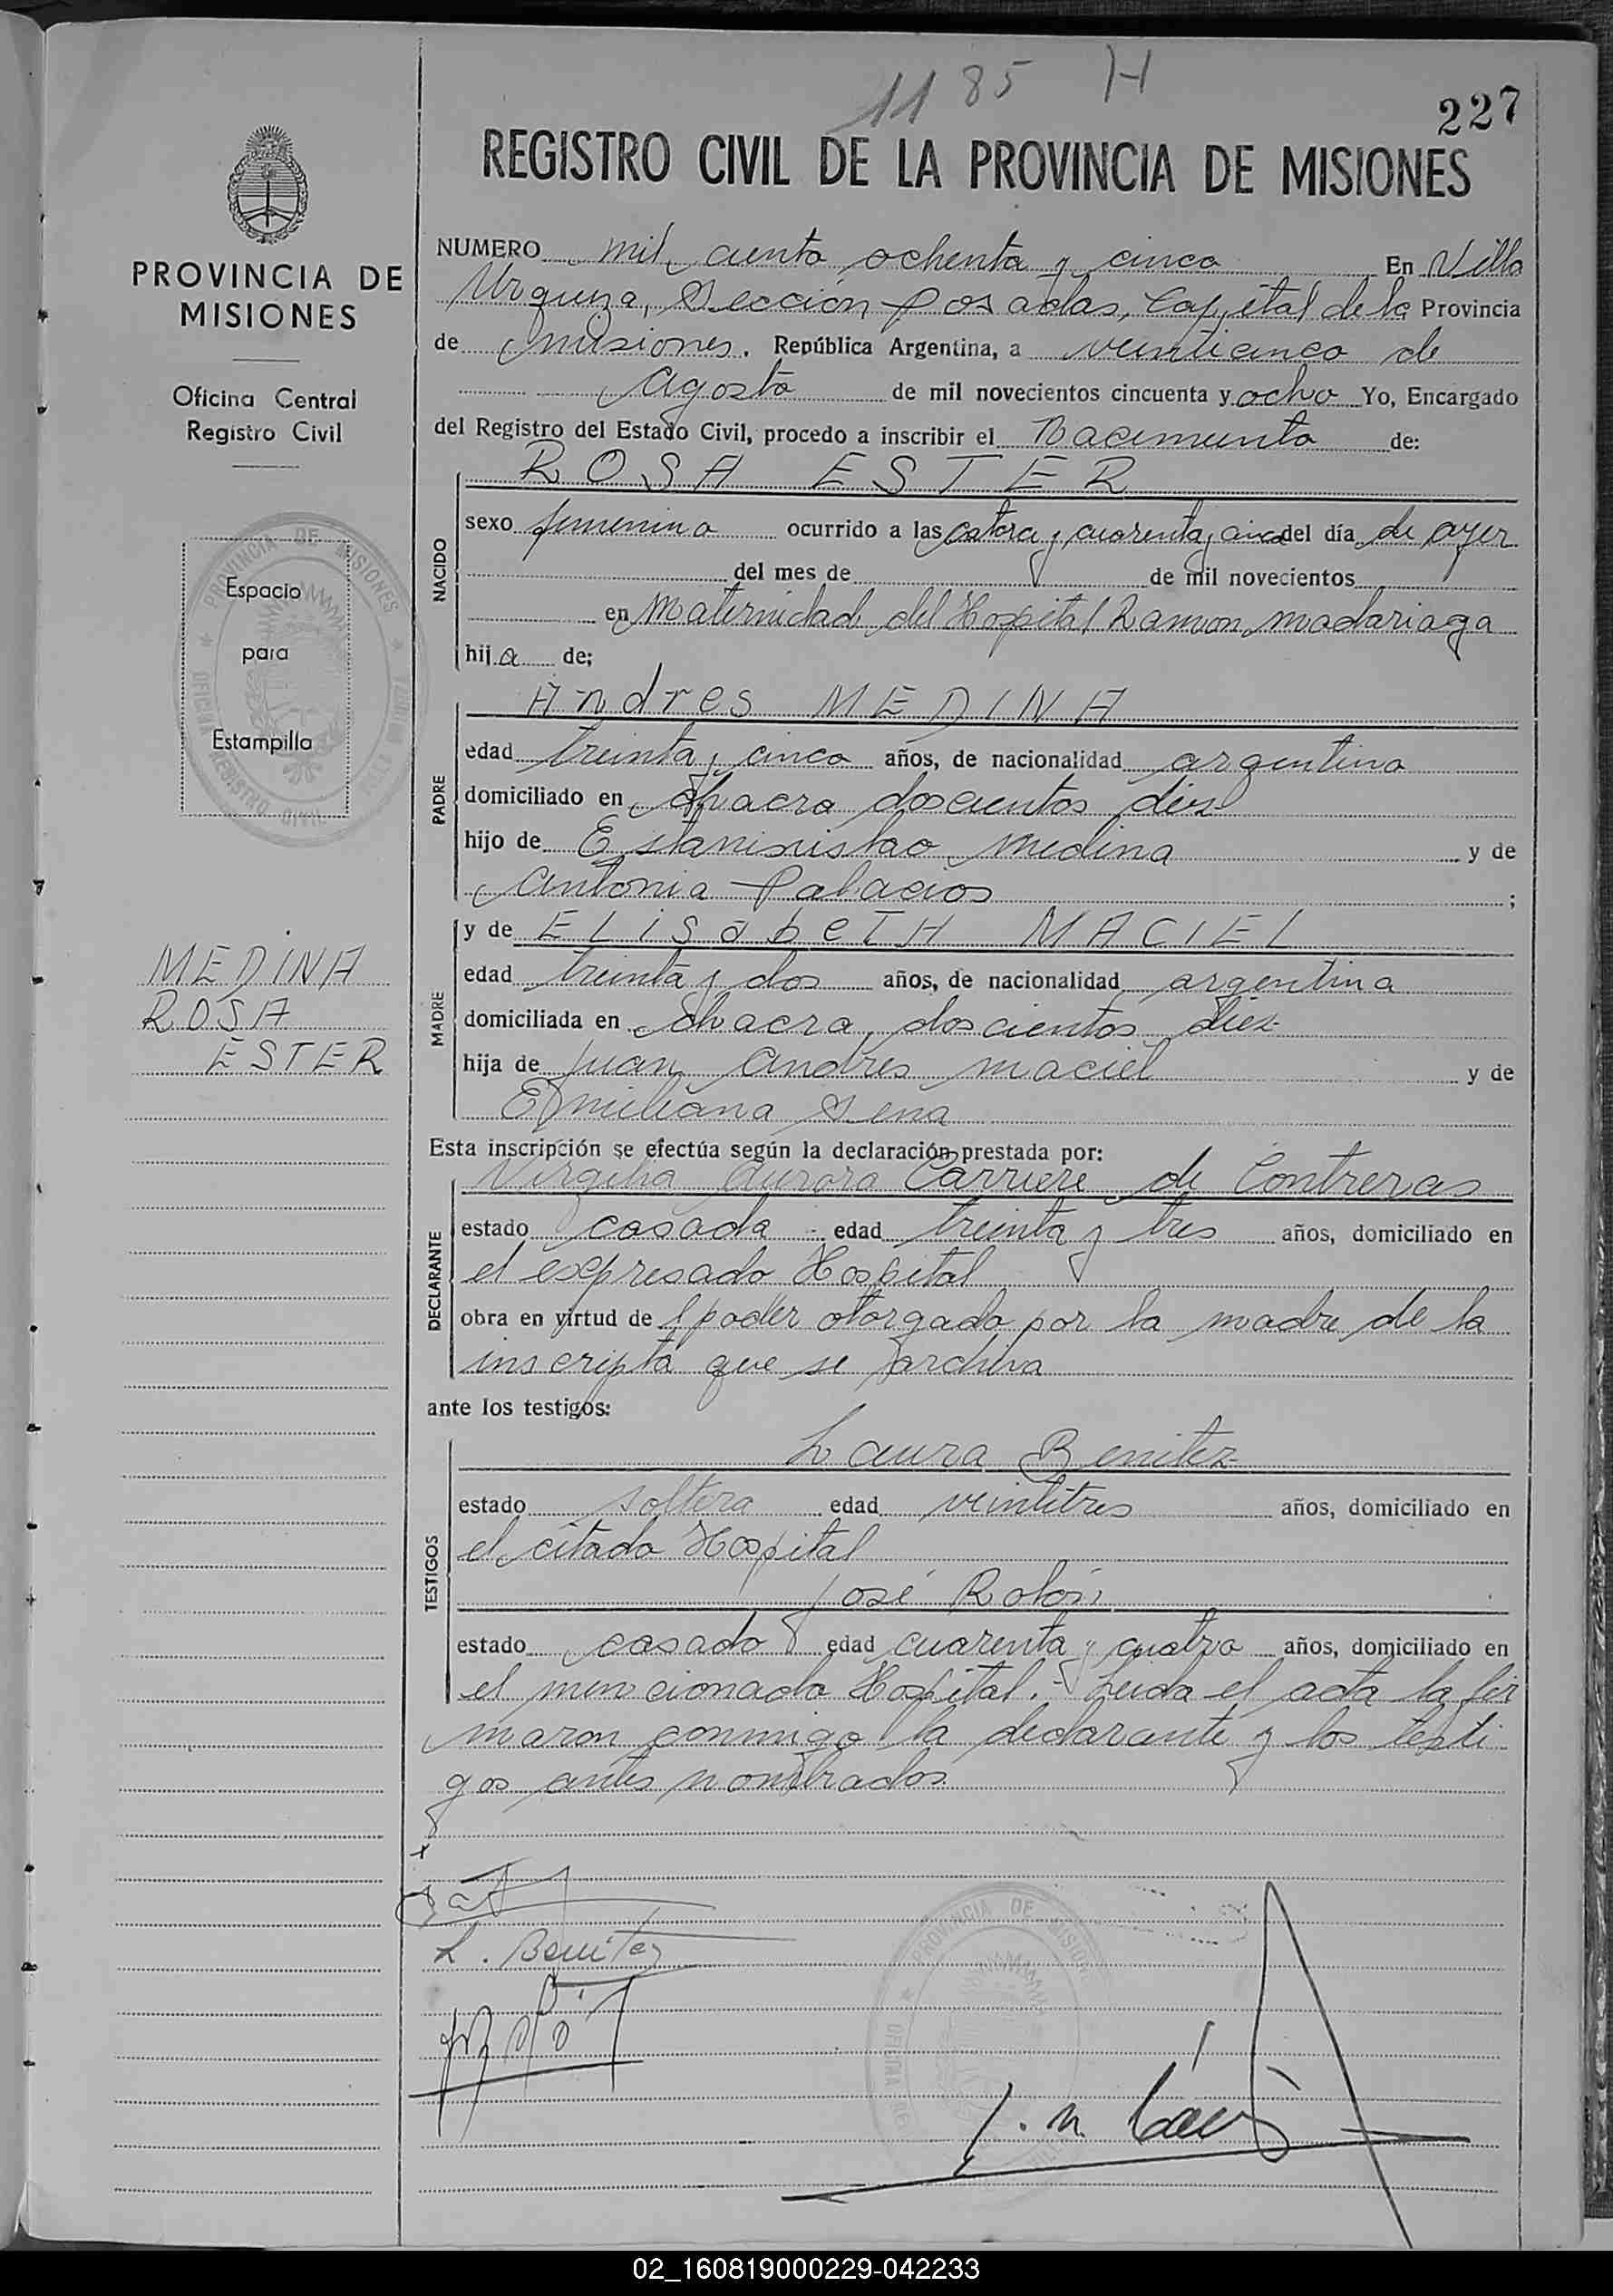 1185 H
227
REGISTRO CIVIL DE LA PROVINCIA DE MISIONES
PROVINCIA DE
MISIONES
Oficina Central
Registro Civil
PROVINCIA DE MISIONES
OFICINA REGISTRO CIVIL
Espacio
para
Estampilla
MEDINA
ROSA
ESTER
NUMERO mil ciento ochenta y cinco En Villa
Urquiza, Sección Posadas, Capital de la Provincia
de Misiones. República Argentina, a veinticinco de
Agosto de mil novecientos cincuenta y ocho Yo, Encargado
del Registro del Estado Civil, procedo a inscribir el Nacimiento de:
NACIDO
ROSA ESTER
sexo femenino ocurrido a las catorce y cuarenta y cinco del día de ayer
del mes de de mil novecientos
en Maternidad del Hospital Ramon Madariaga
hija de;
PADRE
Andres MEDINA
edad treinta y cinco años, de nacionalidad argentina
domiciliado en chacra doscientos diez
hijo de Estanisistao Medina y de
Antonia Palacios ;
MADRE
y de ELISabeTH MACIEL
edad treinta y dos años, de nacionalidad argentina
domiciliada en chacra doscientos diez
hija de Juan Andres Maciel y de
Emiliana Sena
Esta inscripción se efectúa según la declaración prestada por:
DECLARANTE
Virgilia Aurora Carriere de Contreras
estado casada edad treinta y tres años, domiciliado en
el expresado Hospital
obra en virtud de poder otorgado por la madre de la
inscripta que se archiva
ante los testigos:
TESTIGOS
Laura Benitez
estado soltera edad veintitres años, domiciliado en
el citado Hospital
José Rolón
estado casado edad cuarenta y cuatro años, domiciliado en
el mencionado Hospital.- Leida el acta la fir
maron conmigo la declarante y los testi-
gos antes nombrados
L. Benitez
PROVINCIA DE MISIONES
OFICINA RE
02_160819000229-042233